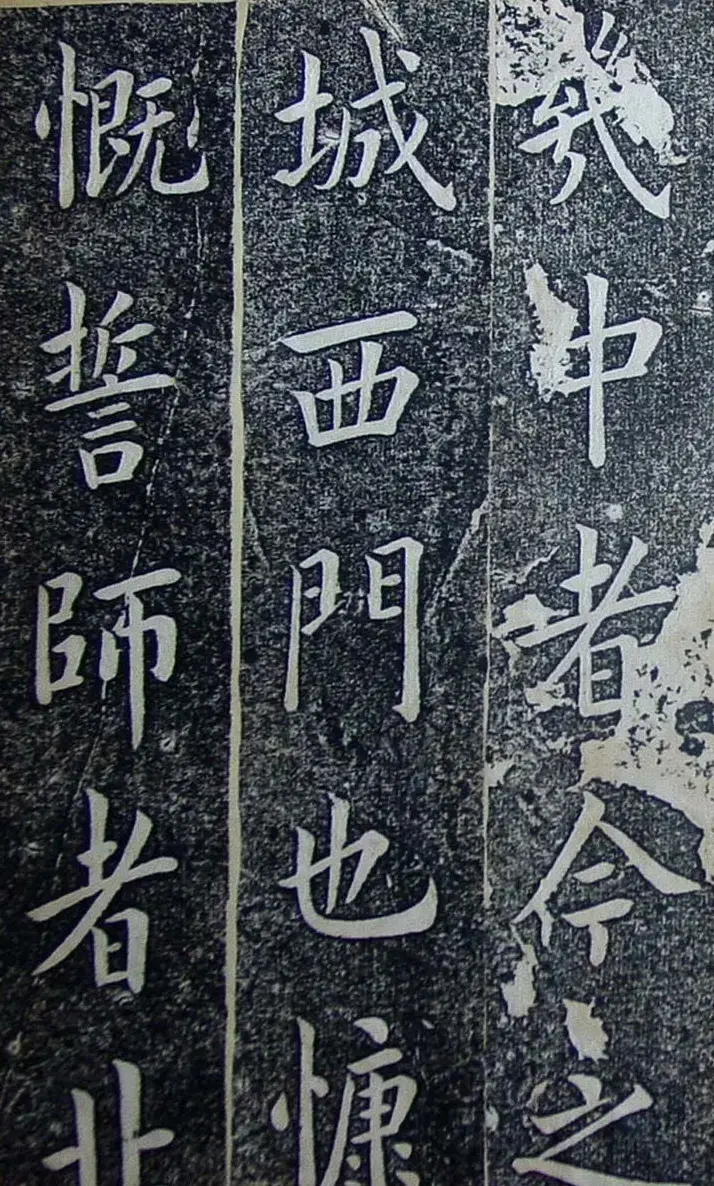 幾中者今之
城西門也慷
慨誓師者北